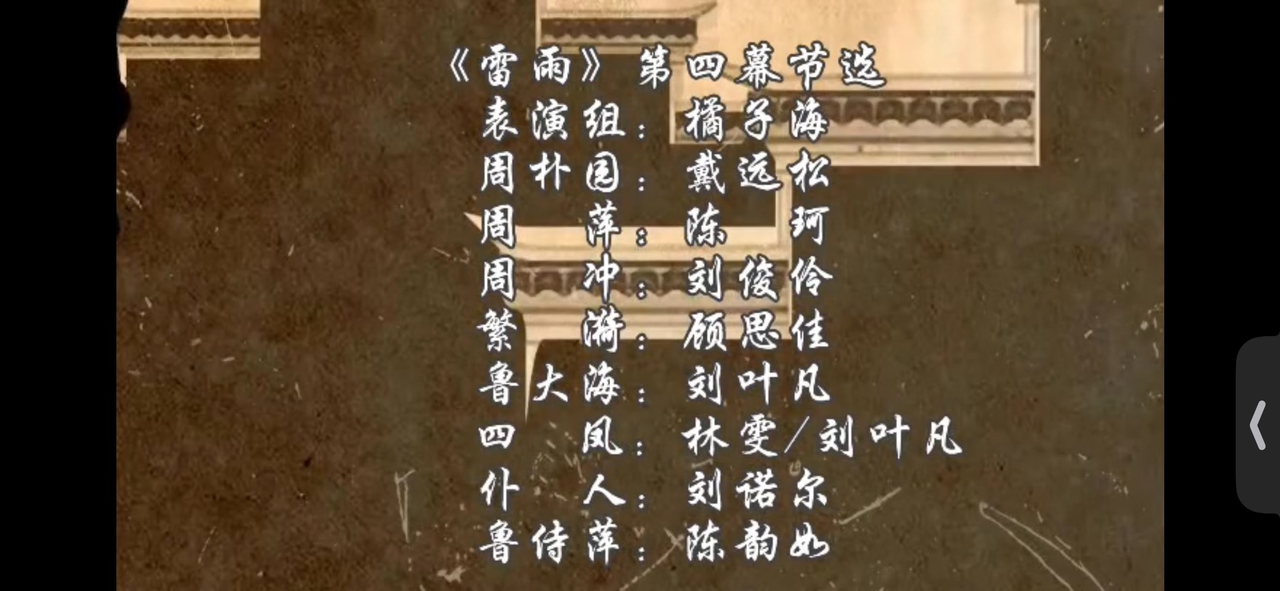 《雷雨》第四幕节选
表演组：橘子海
周朴园：戴远松
周萍：陈珂
周冲：刘俊伶
繁漪：顾思佳
鲁大海：刘叶凡
四凤：林雯/刘叶凡
仆人：刘诺尔
鲁侍萍：陈韵如